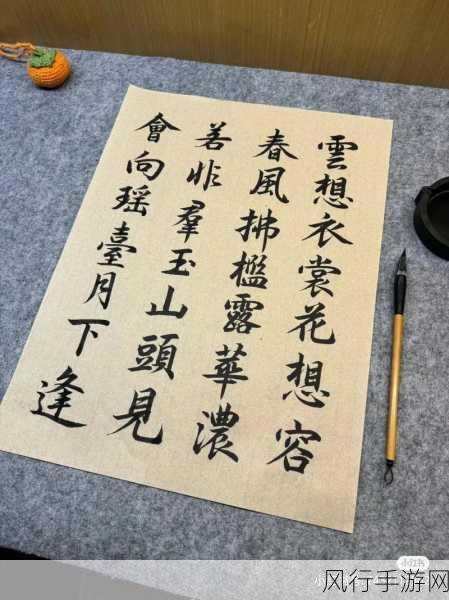 雲想衣裳花想容
春風拂檻露華濃
若非羣玉山頭見
會向瑶臺月下逢
小红书
风行手游网